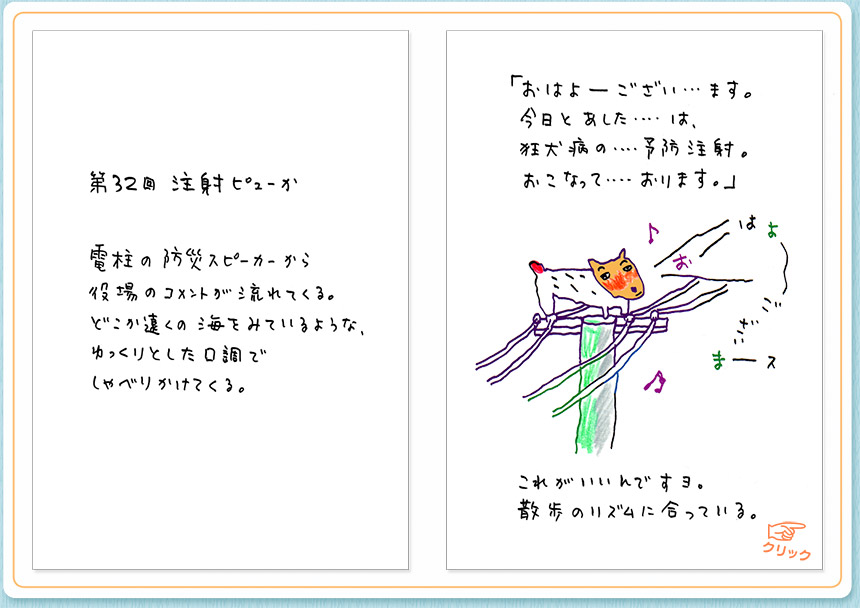 第32回 注射ピューか
電柱の防災スピーカーから
役場のコメントが流れてくる。
どこか遠くの海をみているような、
ゆっくりとした口調で
しゃべりかけてくる。
「おはよーござい…ます。
今日とあした‥‥は、
狂犬病の‥‥予防注射。
おこなって‥‥おります。」
おはよ
ござい
まース
これがいいんですヨ。
散歩のリズムに合っている。
クリック